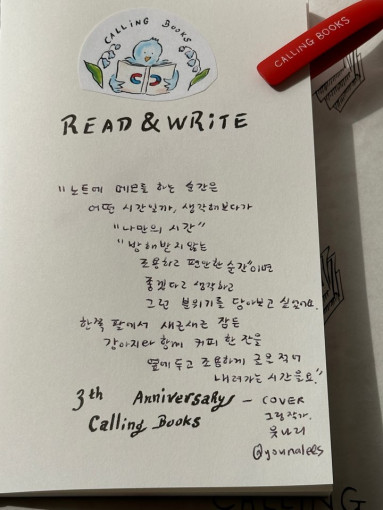 CALLING BOOKS
CALLING BOOKS
READ & WRITE
"노트에 메모를 하는 순간은
어떤 시간일까, 생각해보다가
"나만의 시간"
"방해받지 않는
조용하고 편안한 순간"이면
좋겠다고 생각하고
그런 분위기를 담아보고 싶었어요.
한쪽 팔에서 새근새근 잠든
강아지와 함께 커피 한 잔을
옆에 두고 조용하게 글을 적어
내려가는 시간을요."
3th Anniversary - COVER
Calling Books
그림작가.
@younalees
CALLING